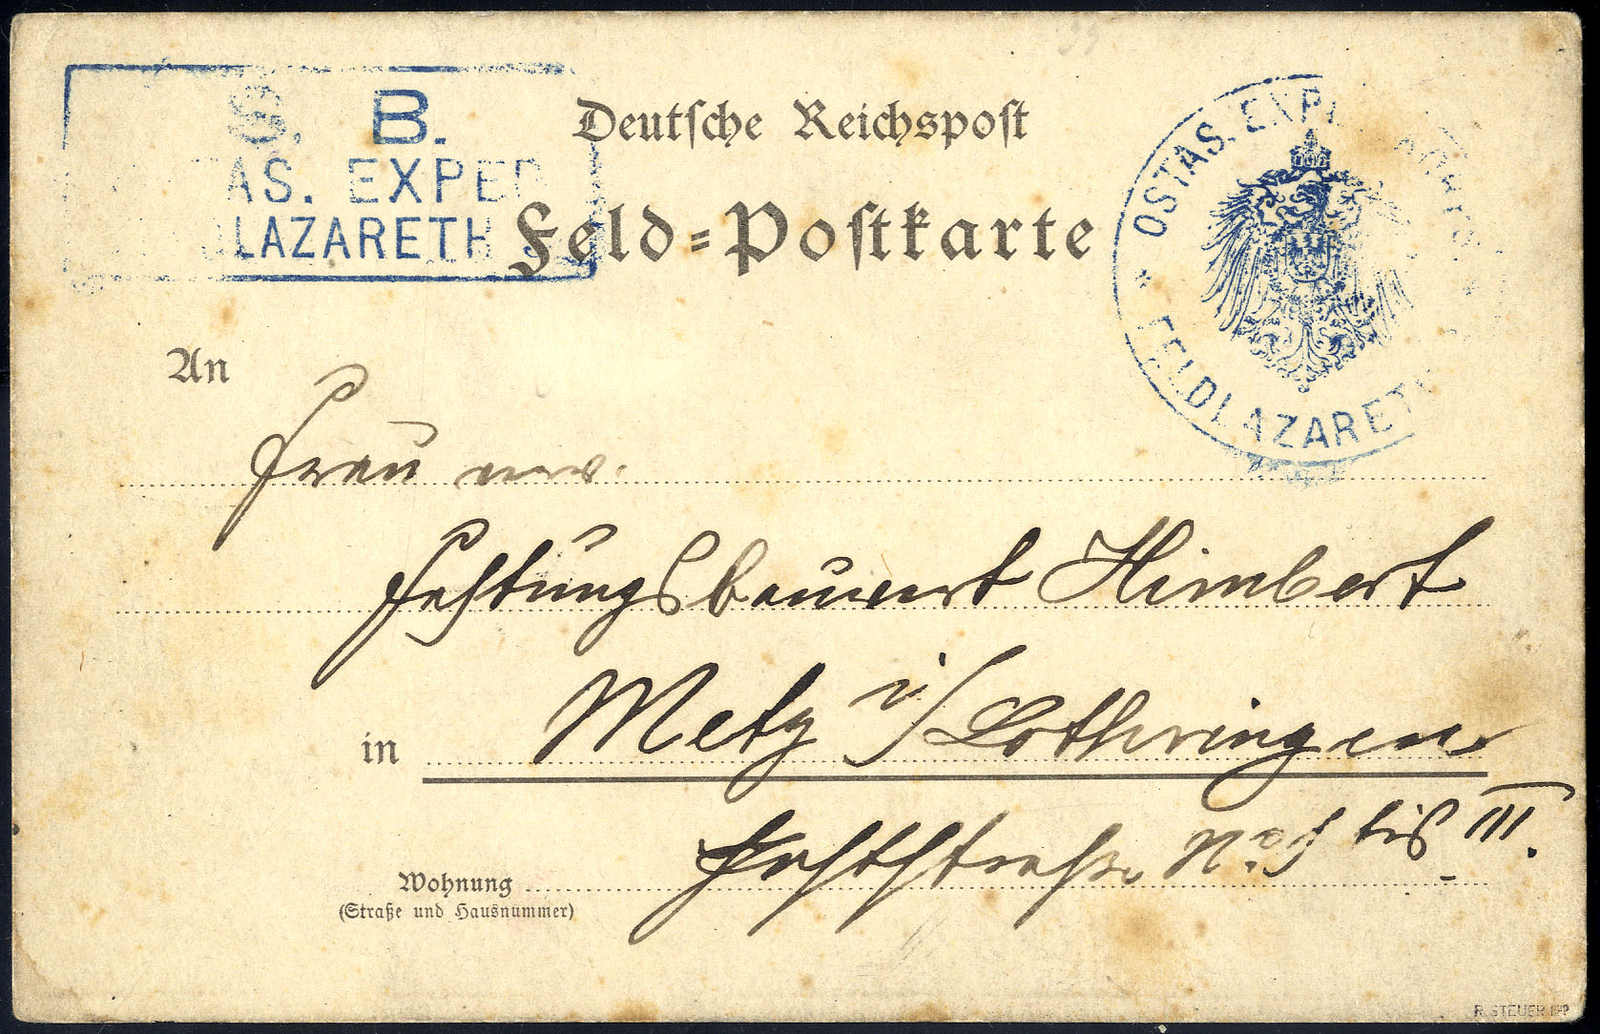 S. B.
AS. EXPED
LAZARETH
Deutsche Reichspost
Feld=Postkarte
OSTAS. EXP
FELDLAZARETH
An
Frau
Festungsbauwart Himbert
in Metz i/Lothringen
Wohnung
(Straße und Hausnummer)
No bis III.
R. STEUER BPP